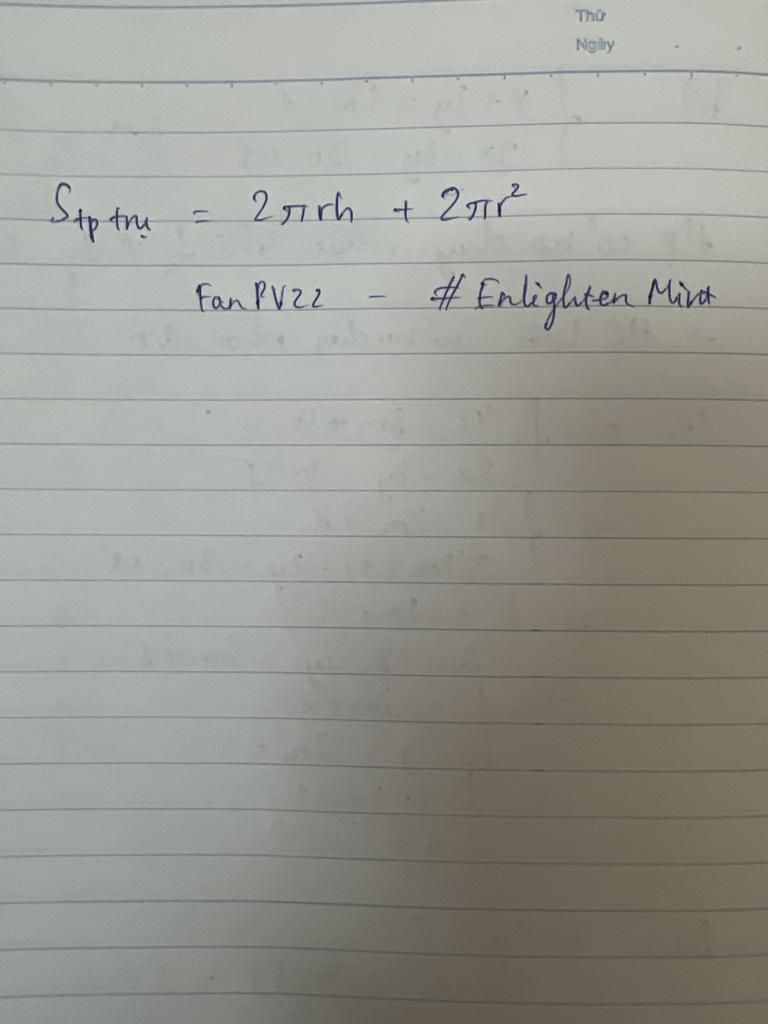 Thứ
Ngày
Stp trụ = 2πrh + 2πr²
FanPV22 - # Enlighten